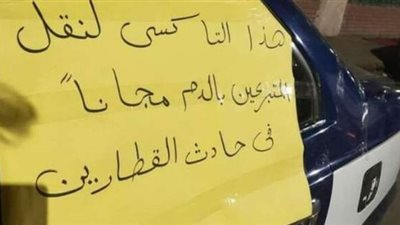 هذا التاكسى لنقل
المتبرعين بالدم مجاناً
فى حادث القطارين